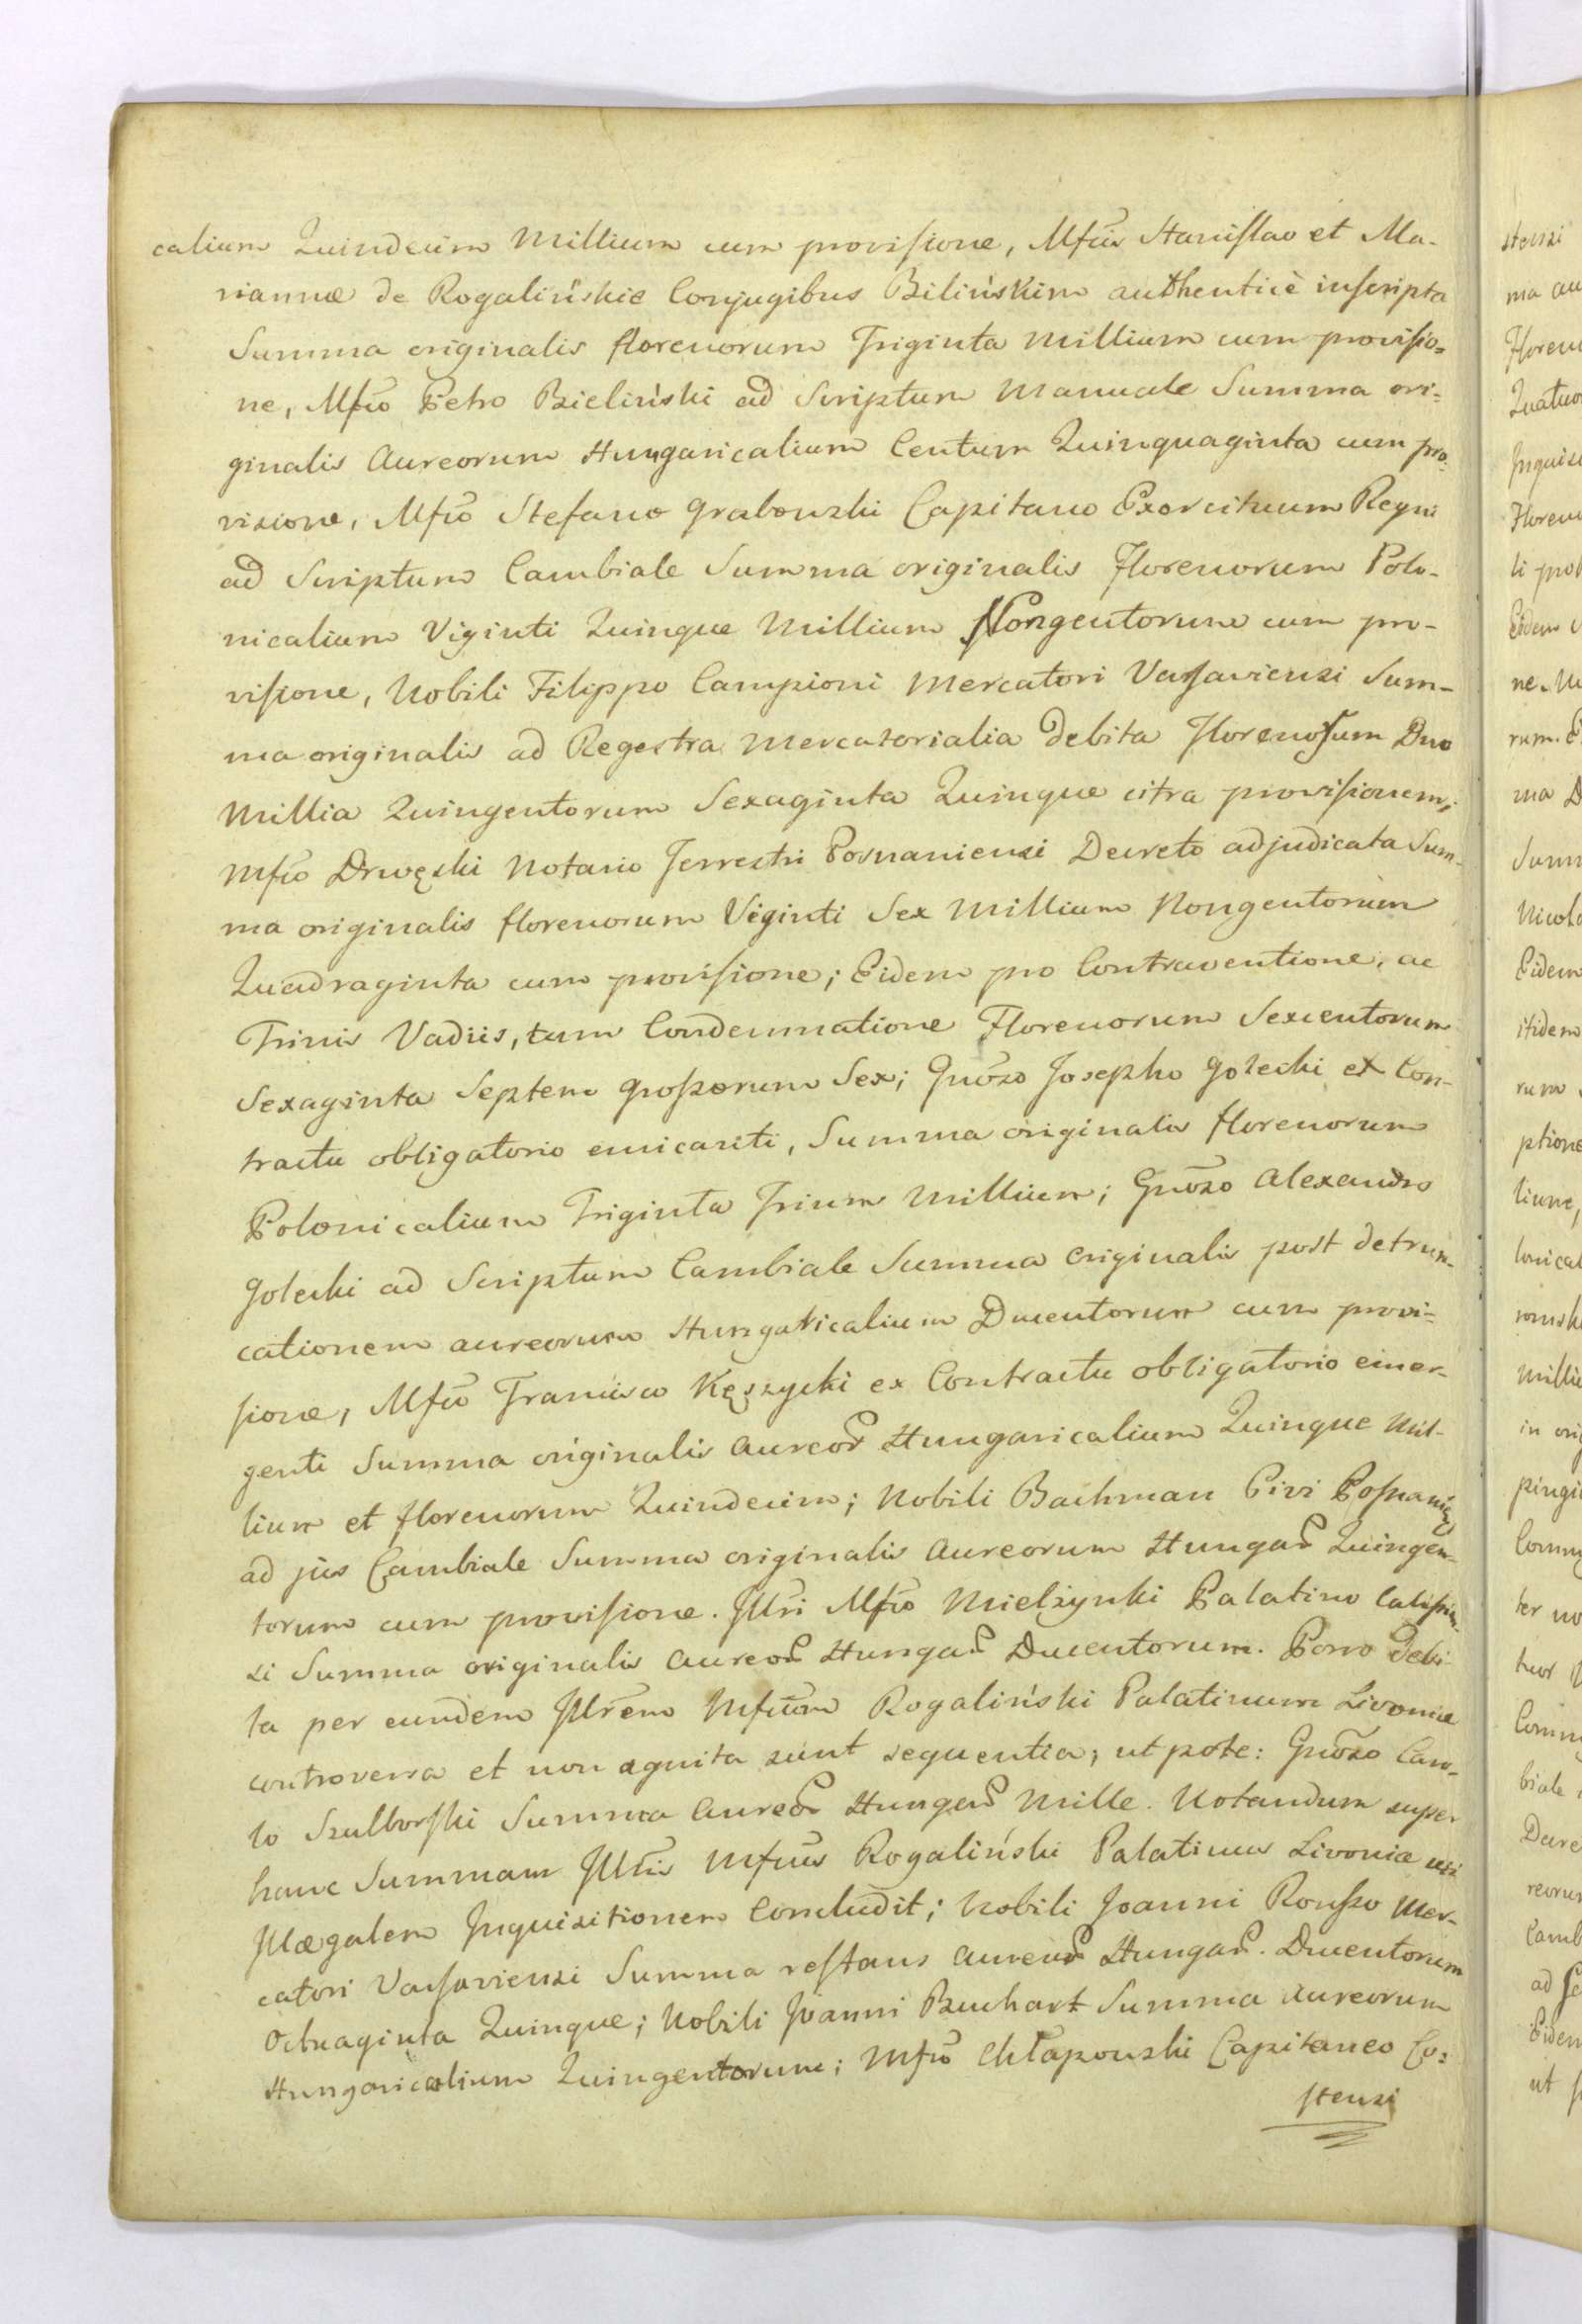 calium Quindecim Millium cum provisione, Mfcis Stanislao et Ma-
riannæ de Rogalińskie Conjugibus Bilińskim authenticè inscripta
Summa originalis florenorum Triginta Millium cum provisio=
ne, Mfco Petro Bieliński ad Scriptum Manuale Summa ori=
ginalis Aureorum Hungaricalium Centum Quinquaginta cum pro-
visione, Mfco Stefano Grabowski Capitano Exercituum Regni
ad Scriptum Cambiale Summa originalis Florenorum Polo-
nicalium Viginti Quinque Millium Nongentorum cum pro-
visione, Nobili Filippo Campioni Mercatori Varsaviensi Sum-
ma originalis ad Regestra Mercatorialia debita Florenorum Duo
Millia Quingentorum Sexaginta Quinque citra provisionem;
Mfco Drwęski Notario Terrestri Posnaniensi Decreto adjudicata Sum-
ma originalis florenorum Viginti Sex Millium Nongentorum
Quadraginta cum provisione; Eidem pro Contraventione, ac
Trinis Vadiis, tum Condemnatione Florenorum Sexcentorum
Sexaginta Septem grossorum Sex; Gnõso Josepho Golecki ex Con-
tractu obligatorio emicanti, Summa originalis florenorum
Polonicalium Triginta Trium Millium; Gnõso Alexandro
Golecki ad Scriptum Cambiale Summa originalis post detrun-
cationem aureorum Hungaricalium Ducentorum cum provi=
sione, Mfco Francisco Kęszycki ex Contractu obligatorio emer-
genti Summa originalis Aureor Hungaricalium Quinque Mil-
lium et florenorum Quindecim; Nobili Bachman Civi Posnanien
ad jus Cambiale Summa originalis Aureorum Hungar Quingen-
torum cum provisione. Jllri Mfco Mielzynki Palatino Calissien-
si Summa originalis Aureor Hungar Ducentorum. Porro Debi-
ta per eundem Jllrem Mfcum Rogaliński Palatinum Livoniæ
controversa et non agnita sunt sequentia, ut pote: Gnõso Caro-
lo Szulborski Summa Aureor Hungar Mille. Notandum super
hanc Summam Jllris Mfcus Rogaliński Palatinus Livoniæ
Jllægalem Jnquisitionem Concludit; Nobili Joanni Rousso Mer-
catori Varsaviensi Summa restans Aureor Hungar. Ducentorum
Octuaginta Quinque; Nobili Joanni Buchart Summa Aureorum
Hungaricalium Quingentorum; Mfco Chłapowski Capitaneo Co=
stensi